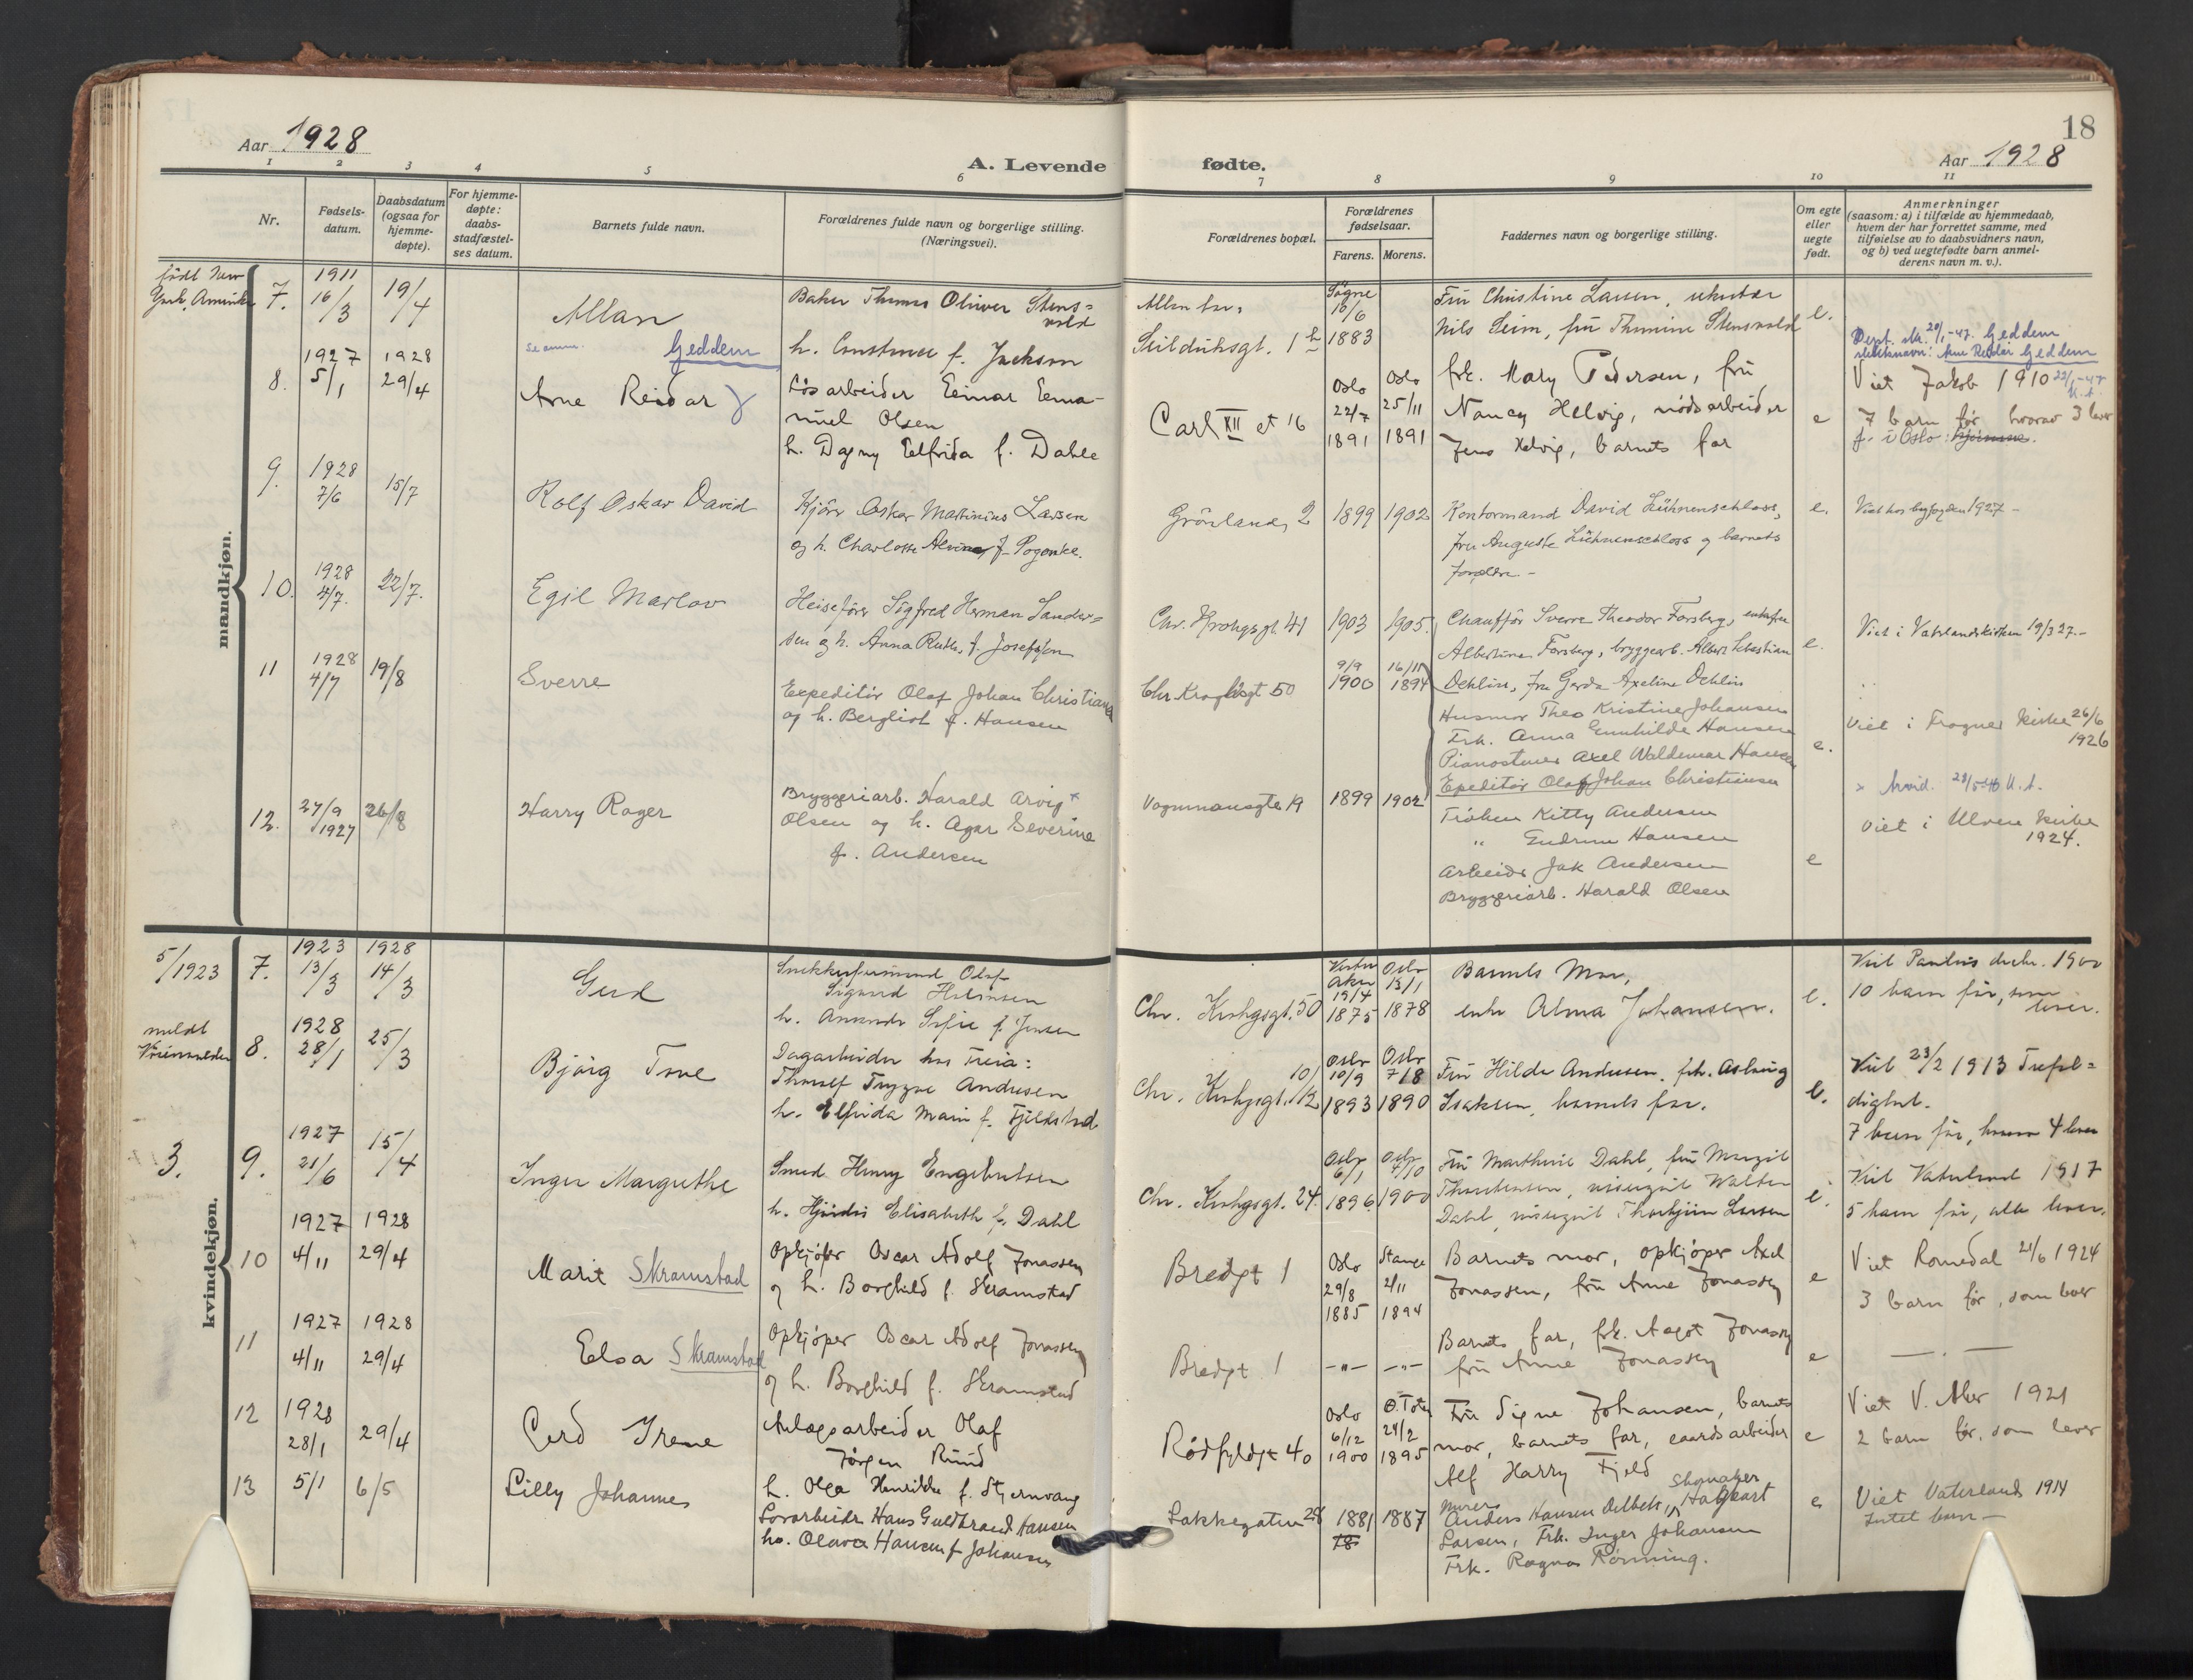 Aar 1928
A. Levende
1 2 3 4 5 6
Nr.
Fødsels-
datum.
Daabsdatum
(ogsaa for
hjemme-
døpte).
For hjemme-
døpte:
daabs-
stadfæstel-
ses datum.
Barnets fulde navn.
Forældrenes fulde navn og borgerlige stilling.
(Næringsvei).
mandkjøn.
født New
7.
1911
16/3
19/4
Allan
Baker Thomas Oliver Stens=
vold
h. Constance f. Jackson
8.
1927
5/1
1928
29/4
Geddem
Arne Reidar
Løsarbeider Einar Ema-
nuel Olsen
h. Dagny Elfrida f. Dahle
9.
1928
7/6
15/7
Rolf Oskar David
Kjører Oskar Martinius Larsen
og h. Charlotte Alvine f. Poganke.
10.
1928
4/7.
22/7.
Egil Marlow
Heisefører Sigfred Herman Sander=
sen og h. Anna Ruth, f. Josefsen
11
1928
4/7
19/8
Sverre
Expeditør Olaf Johan Christiansen
og h. Bergliot f. Hansen
12.
27/9
1927
26/8
Harry Roger
Bryggeriarb. Harald Arvig x
Olsen og h. Agar Severine
f. Andersen
kvindekjøn.
5/1923
7.
1923
13/3
1928
14/3
Gerd
Olaf
Sigurd
h. Amanda Sofie f. Jensen
meldt
8.
1928
28/1
25/3
Bjørg Tove
Dagarbeider hos Freia:
Thoralf Trygve Andresen
h. Elfrida Marie f. Fjeldstad
3.
9.
1927
21/6
15/4
Inger Margrethe
Smed Henry Engebretsen
h. Hjørdis Elisabeth f. Dahl
10
1927
4/11
1928
29/4
Marit Skramstad
Opkjøper Oscar Adolf Jonassen
og h. Borghild f. Skramstad
11
1927
4/11
1928
29/4
Elsa Skramstad
Opkjøper Oscar Adolf Jonassen
og h. Borghild f. Skramstad
12
1928
28/1
29/4
Gerd Irene
Anlægsarbeider Olaf
Jørgen Ruud
h. Olga Henrikke f. Stjernvang
13
5/1
6/5
Lilly Johanne
Hans Guldbrand Hansen
h. Olava Hansen f Johansen
18
fødte.
Aar 1928
7 8 9 10 11
Forældrenes bopæl.
Forældrenes
fødselsaar.
Farens. Morens.
Faddernes navn og borgerlige stilling.
Om egte
eller
uegte
født.
Anmerkninger
(saasom: a) i tilfælde av hjemmedaab,
hvem der har forrettet samme, med
tilføielse av to daabsvidners navn,
og b) ved uegtefødte barn anmel-
derens navn m. v.).
Seilduksgt. 1 h
Søgne
10/6
1883
Fru Christine Larsen,
Nils Seim, fru Thomine Stensvold
e.
Dept. skr. 20/1-47. Geddem
slektsnavn: Arne Reidar Geddem
Carl XII gt 16
Oslo
22/7
1891
Oslo
25/11
1891
frk. Mary Pedersen, fru
Nancy Helvig, nødsarbeider
Jens Helvig, barnets far
e
Viet Jakob 1910
7 barn før hvorav 3 lever
f. i Oslo: hjemme.
Grønland, 2
1899 1902
Kontormand David Lühnenschloss,
fru Auguste Lühnenschloss og barnets
forældre.-
e.
Viet hos byfogden 1927-
Chr. Krohgsgt. 41
1903 1905.
Chauffør Sverre Theodor Forsberg, enkefru
Albertine Forsberg, bryggearb. Albert Sebastian
Dehlin, fru Gerda Axeline Dehlin
e.
Viet i Vaterlandskirken 19/3 27.-
Chr Kroghsgt 50
9/9
1900
16/11
1894
Husmor Thea Kristine Johansen
Frk. Anna Gunhilde Hansen
Pianostemer Axel Waldemar Hansen
Expeditør Olaf Johan Christiansen
e.
Viet i Frogner kirke 26/6
1926
Vognmansgt. 19
1899 1902
Frøken Kitty Andersen
" Gudrun Hansen
Arbeider Jak Andersen
Bryggeriarb. Harald Olsen
e
Viet i Ulvern kirke
1924.
Chr. Krohgsgt. 50
Vestre
Aker
19/4
1875
Oslo
13/1
1878
Barnets Mor,
enke Alma Johansen.
e.
Viet Paulus 1900
10 barn før, som
lever.
Chr. Krohgsgt.
Oslo
10/9
1893
Oslo
7/8
1890
Fru Hilda Andersen, frk. Aslaug
Isaksen, barnets far.
e.
Viet 23/2 1913 Trefol=
dighet.
7 barn før, hvorav 4 lever
Chr. Krohgsgt. 24.
Oslo
6/1
1896
Oslo
7/10
1900
Fru Marthine Dahl, fru Margit
Thorstensen, visergut Walter
Dahl, visergut Thorbjørn Larsen
e.
Viet Vaterland 1917
5 barn før, alle lever.
Bredgt 1
Oslo
29/8
1885
Stange
2/11
1894
Barnets mor, opkjøper Axel
Jonassen, fru Anne Jonassen
e
Viet Romedal 21/6 1924
3 barn før, som lever
Bredgt 1
-"- -"-
Barnets far, frk. Aagot Jonassen
fru Anne Jonassen
e
— " —
Rødfyldgt 40
Oslo
6/12
1900
Ø. Toten
24/2
1895
Fru Signe Johansen, barnets
mor, barnets far, gaardsarbeider
Alf Harry Fjeld
e
Viet V. Aker 1921
2 barn før, som lever
Lakkegaten 28
1881 1887
18
Murer
Anders Hansen Delbek, Skomaker
Larsen, Frk. Inger Johansen
Frk. Ragna Rønning.
e
Viet Vaterland 1914
Intet barn -